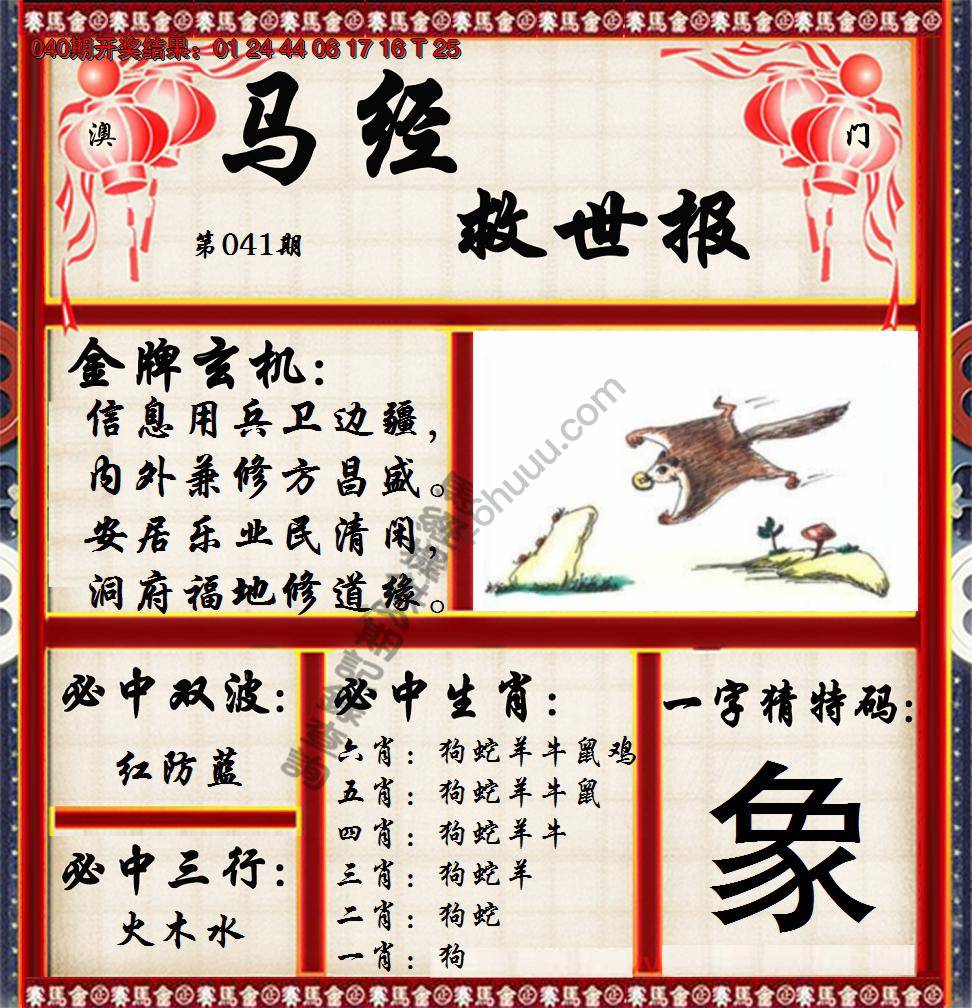 040期开奖结果：01 24 44 06 17 16 T 25
澳
门
马经
救世报
第041期
金牌玄机：
信息用兵卫边疆，
内外兼修方昌盛。
安居乐业民清闲，
洞府福地修道缘。
必中双波：
红防蓝
必中三行：
火木水
必中生肖：
六肖：狗蛇羊牛鼠鸡
五肖：狗蛇羊牛鼠
四肖：狗蛇羊牛
三肖：狗蛇羊
二肖：狗蛇
一肖：狗
一字猜特码：
象